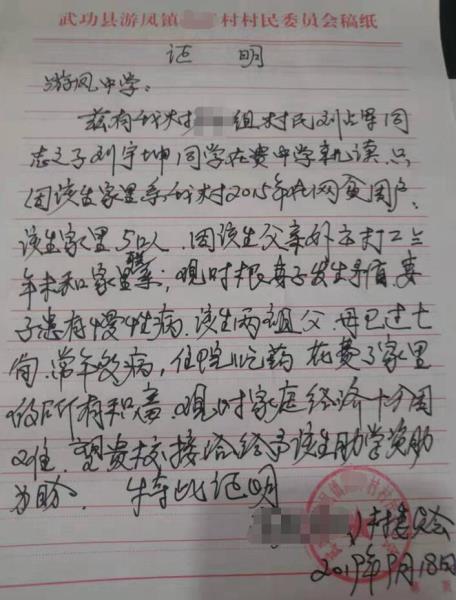 武功县游凤镇 村村民委员会稿纸
证 明
游凤中学：
兹有我村 组村民刘占军同
志之子刘宇坤同学在贵中学就读，只
因该生家里系我村2015年在网贫困户，
该生家里5口人，因该生父亲外出打工三
年未和家里联系，现时根妻子发生矛盾，妻
子患有慢性病，该生两祖父、母已过七
旬，常年多病，住院吃药 花费了家里
的所有积蓄 现时家庭经济十分困
难，望贵校接洽给予该生助学资助
为盼。 特此证明
村委会
2019年9月18日